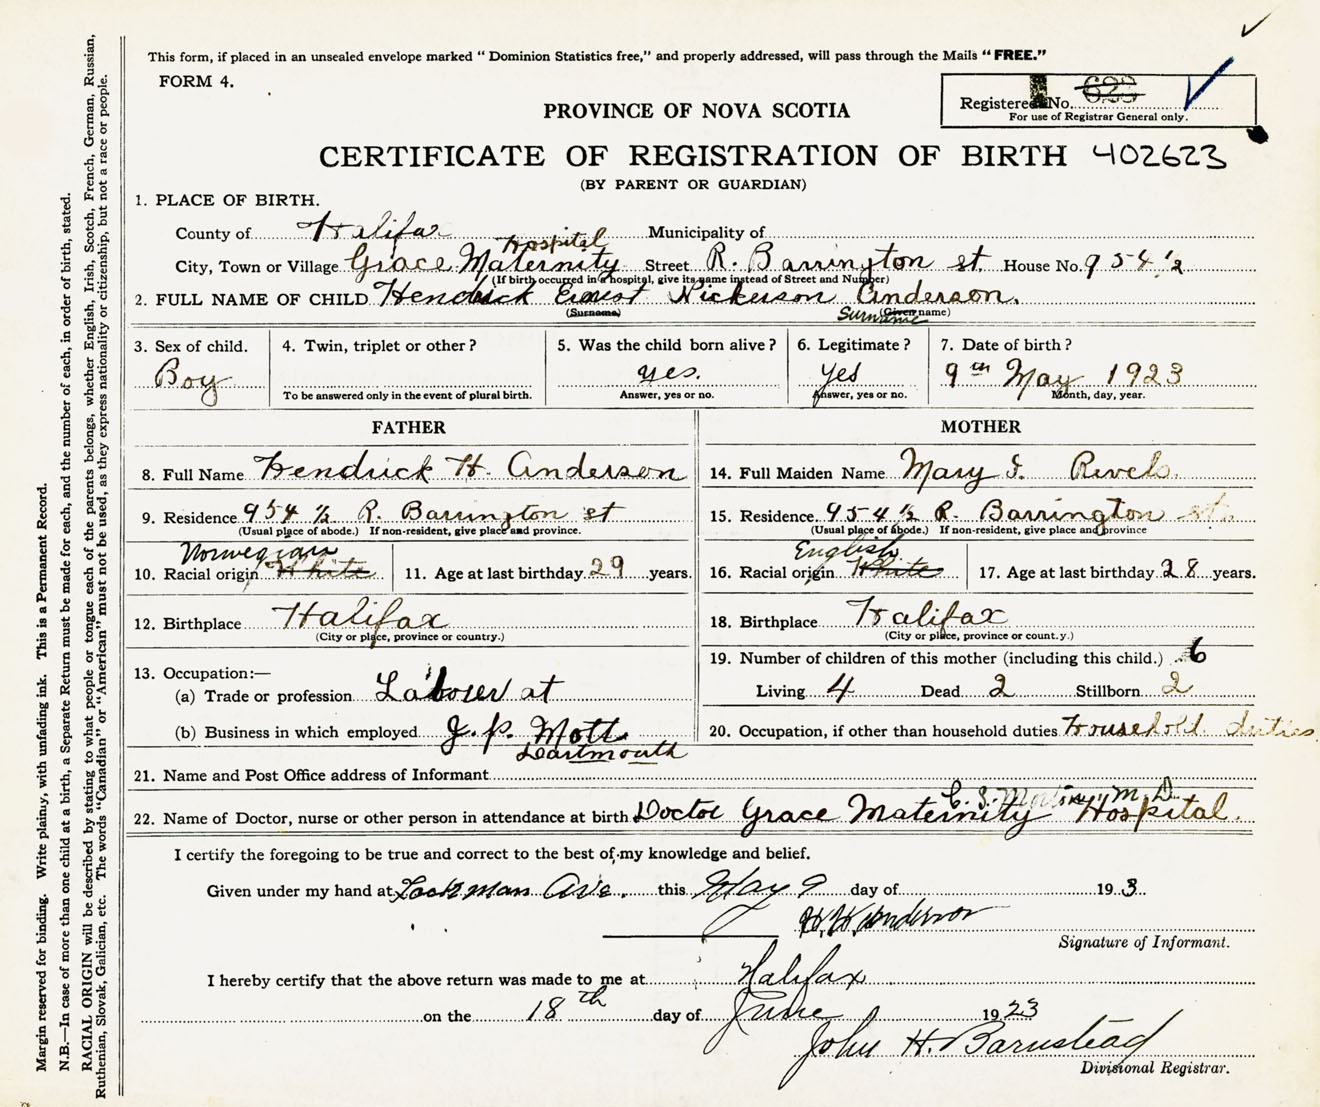 This form, if placed in an unsealed envelope marked “ Dominion Statistics free,” and properly addressed, will pass through the Mails “ FREE.”
FORM 4.
Registered No. 623
For use of Registrar General only.
PROVINCE OF NOVA SCOTIA
CERTIFICATE OF REGISTRATION OF BIRTH 402623
(BY PARENT OR GUARDIAN)
1. PLACE OF BIRTH.
County of Halifax Municipality of
Hospital
City, Town or Village Grace Maternity Street R. Barrington st. House No. 954 1/2
(If birth occurred in a hospital, give its name instead of Street and Number)
2. FULL NAME OF CHILD Hendrick Ernest Nickerson Anderson.
(Surname) Surname (Given name)
3. Sex of child. 4. Twin, triplet or other ? 5. Was the child born alive ? 6. Legitimate ? 7. Date of birth ?
Boy yes. yes 9th May 1923
To be answered only in the event of plural birth. Answer, yes or no. Answer, yes or no. Month, day, year.
FATHER
8. Full Name Hendrick H. Anderson
9. Residence 954 1/2 R. Barrington st
(Usual place of abode.) If non-resident, give place and province.
Norwegian
10. Racial origin White 11. Age at last birthday 29 years.
12. Birthplace Halifax
(City or place, province or country.)
13. Occupation:—
(a) Trade or profession Laborer at
(b) Business in which employed J. P. Mott
Dartmouth
MOTHER
14. Full Maiden Name Mary I. Revels.
15. Residence 954 1/2 R. Barrington st.
(Usual place of abode.) If non-resident, give place and province
English
16. Racial origin White 17. Age at last birthday 28 years.
18. Birthplace Halifax
(City or place, province or count.y.)
19. Number of children of this mother (including this child.) 6
Living 4 Dead 2 Stillborn 2
20. Occupation, if other than household duties Household duties
21. Name and Post Office address of Informant
C. S. Morton, M. D.
22. Name of Doctor, nurse or other person in attendance at birth Doctor Grace Maternity Hospital.
I certify the foregoing to be true and correct to the best of my knowledge and belief.
Given under my hand at Lockman Ave. this May 9 day of 19 3.
H. H. Anderson
Signature of Informant.
I hereby certify that the above return was made to me at Halifax
on the 18th day of June 1923
John H. Barnstead
Divisional Registrar.
Margin reserved for binding. Write plainy, with unfading ink. This is a Permanent Record.
N.B.—In case of more than one child at a birth, a Separate Return must be made for each, and the number of each, in order of birth, stated.
RACIAL ORIGIN will be described by stating to what people or tongue each of the parents belongs, whether English, Irish, Scotch, French, German, Russian,
Ruthenian, Slovak, Galician, etc. The words “Canadian” or “American” must not be used, as they express nationality or citizenship, but not a race or people.